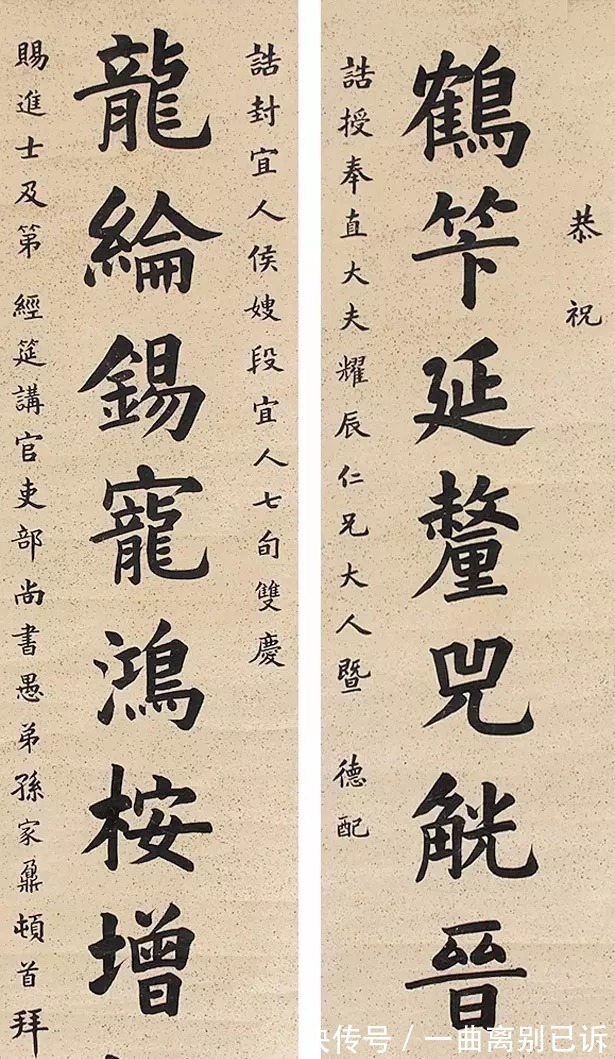 恭祝
鶴笇延釐兕觥晉
誥授奉直大夫耀辰仁兄大人暨 德配
誥封宜人侯嫂段宜人七旬雙慶
龍綸錫寵鴻桉增
賜進士及第 經筵講官吏部尚書愚弟孫家鼐頓首拜
快传号 / 一曲离别已诉